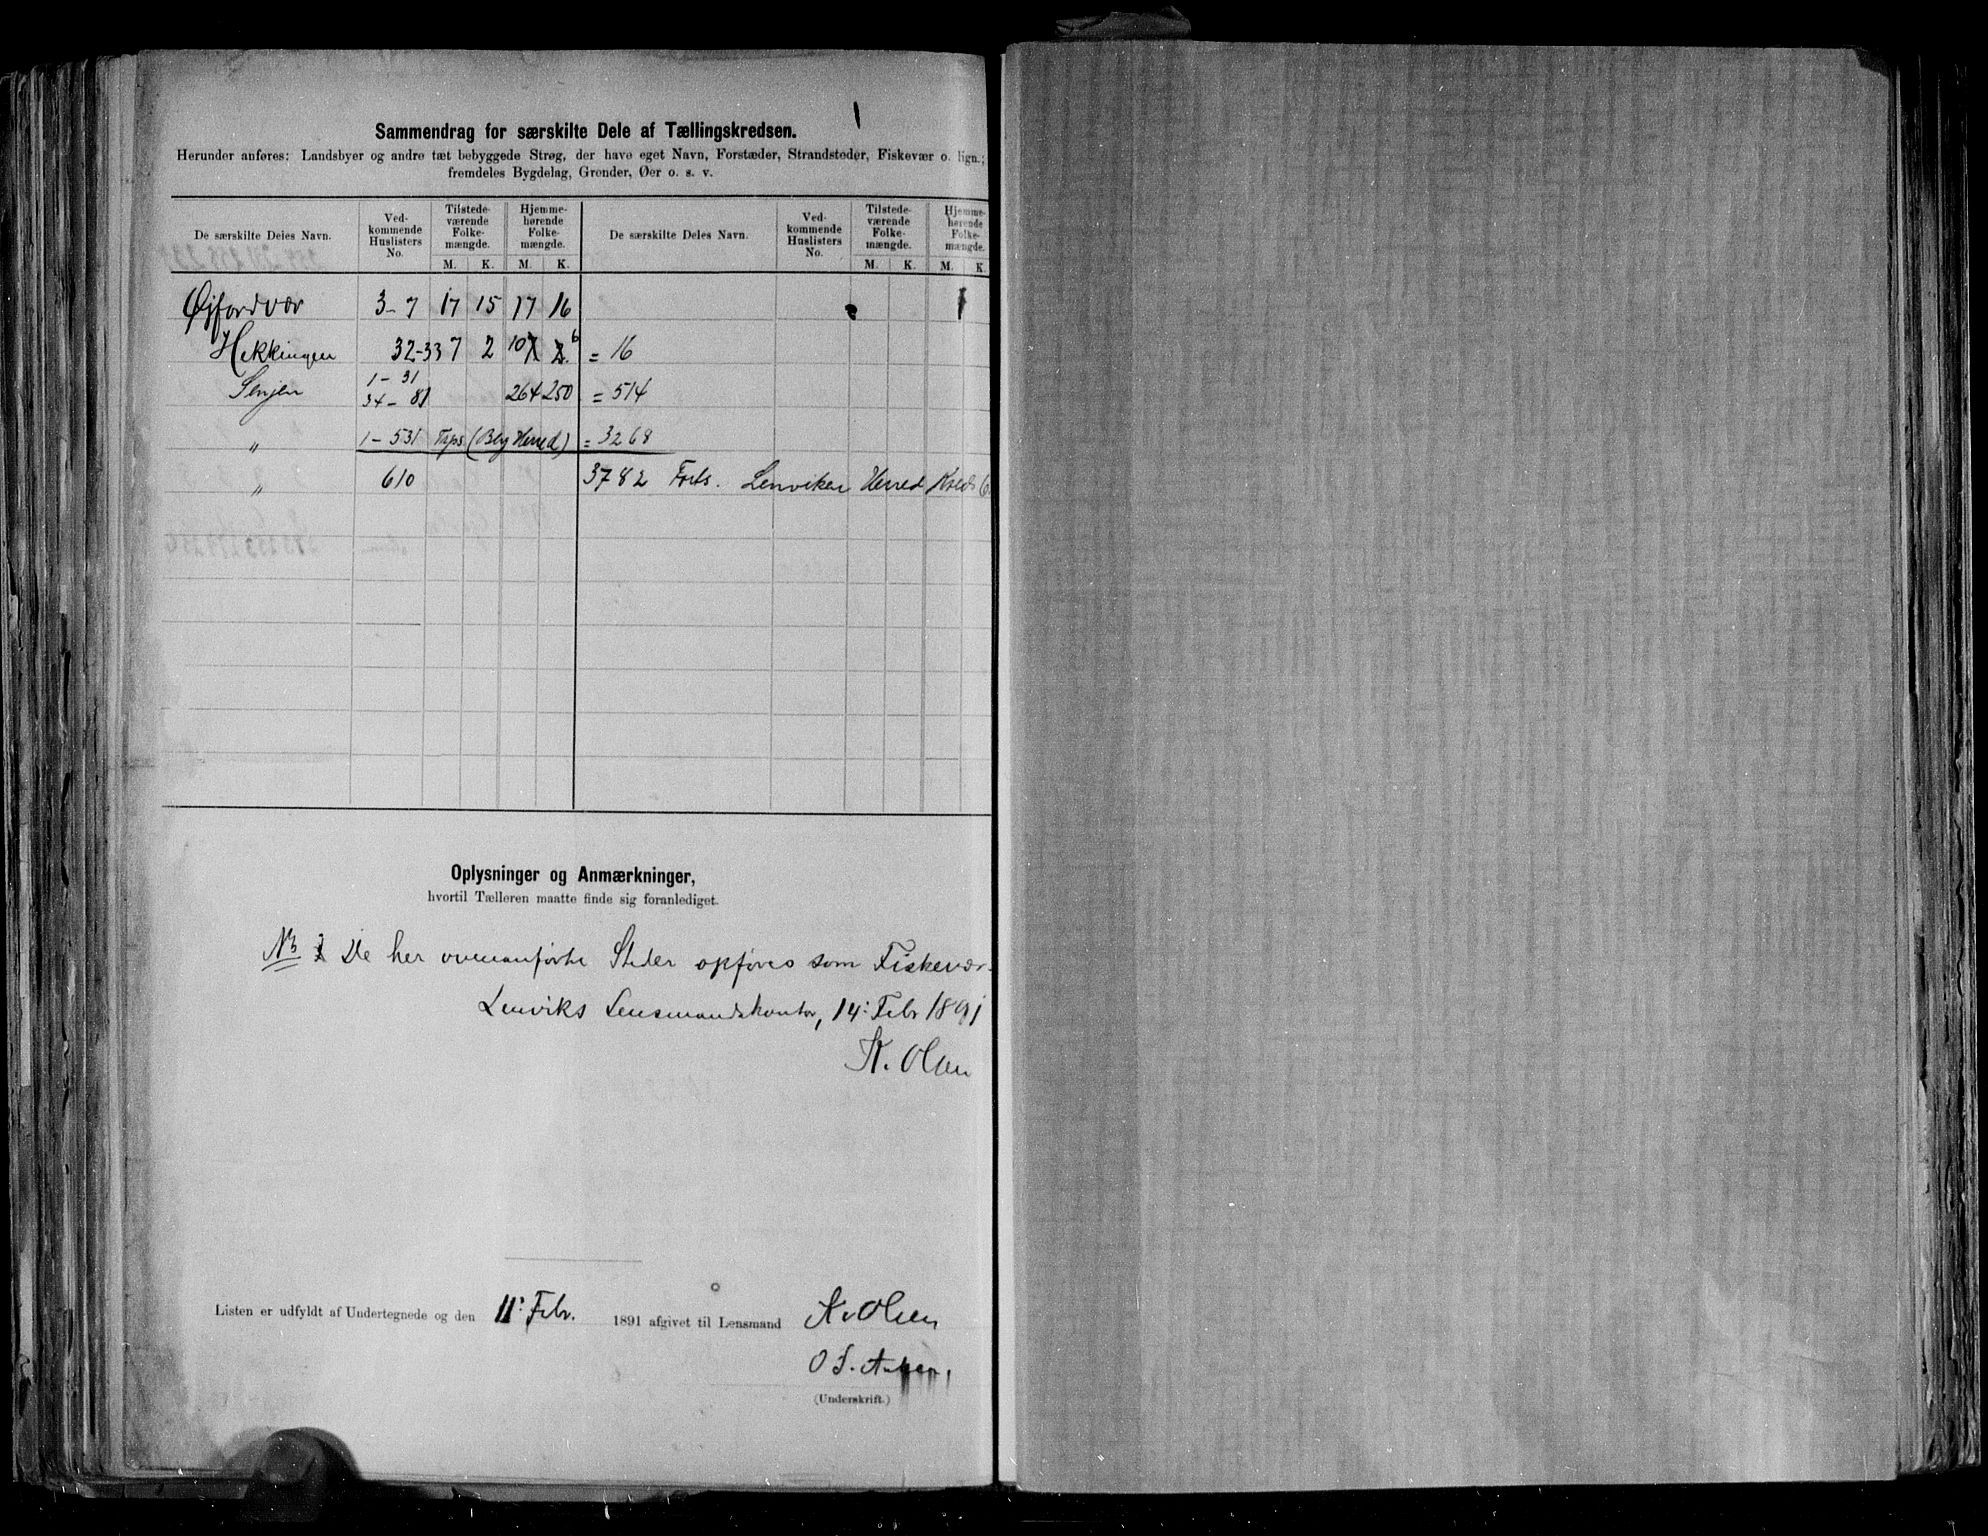 Sammendrag for særskilte Dele af Tællingskredsen.
Herunder anføres: Landsbyer og andre tæt bebyggede Strøg, der have eget Navn, Forstæder, Strandsteder, Fiskevær o. lign.;
fremdeles Bygdelag, Grender, Øer o. s. v.
De særskilte Deles Navn. Ved-kommende Huslisters No. Tilstede-værende Folke-mængde. Hjemme-hørende Folke-mængde. De særskilte Deles Navn. Ved-kommende Huslisters No. Tilstede-værende Folke-mængde. Hjemme-hørende Folke-mængde.
M. K. M. K. M. K. M. K.
Øjfordvær 3-7 17 15 17 16
Hekkingen 32-33 7 2 10 6 = 16
Senjen 1-31 34-81 264 250 = 514
„ 1-531 (Herred) = 3268
„ 610 3782 Forts. Lenviken Herred Kreds
Oplysninger og Anmærkninger,
hvortil Tælleren maatte finde sig foranlediget.
NB De her ovenanførte Steder opføres som Fiskevær.
Lenviks Lensmandskontor, 14: Febr 1891
K. Olsen
Listen er udfyldt af Undertegnede og den 11: Febr. 1891 afgivet til Lensmand K. Olsen
(Underskrift.)